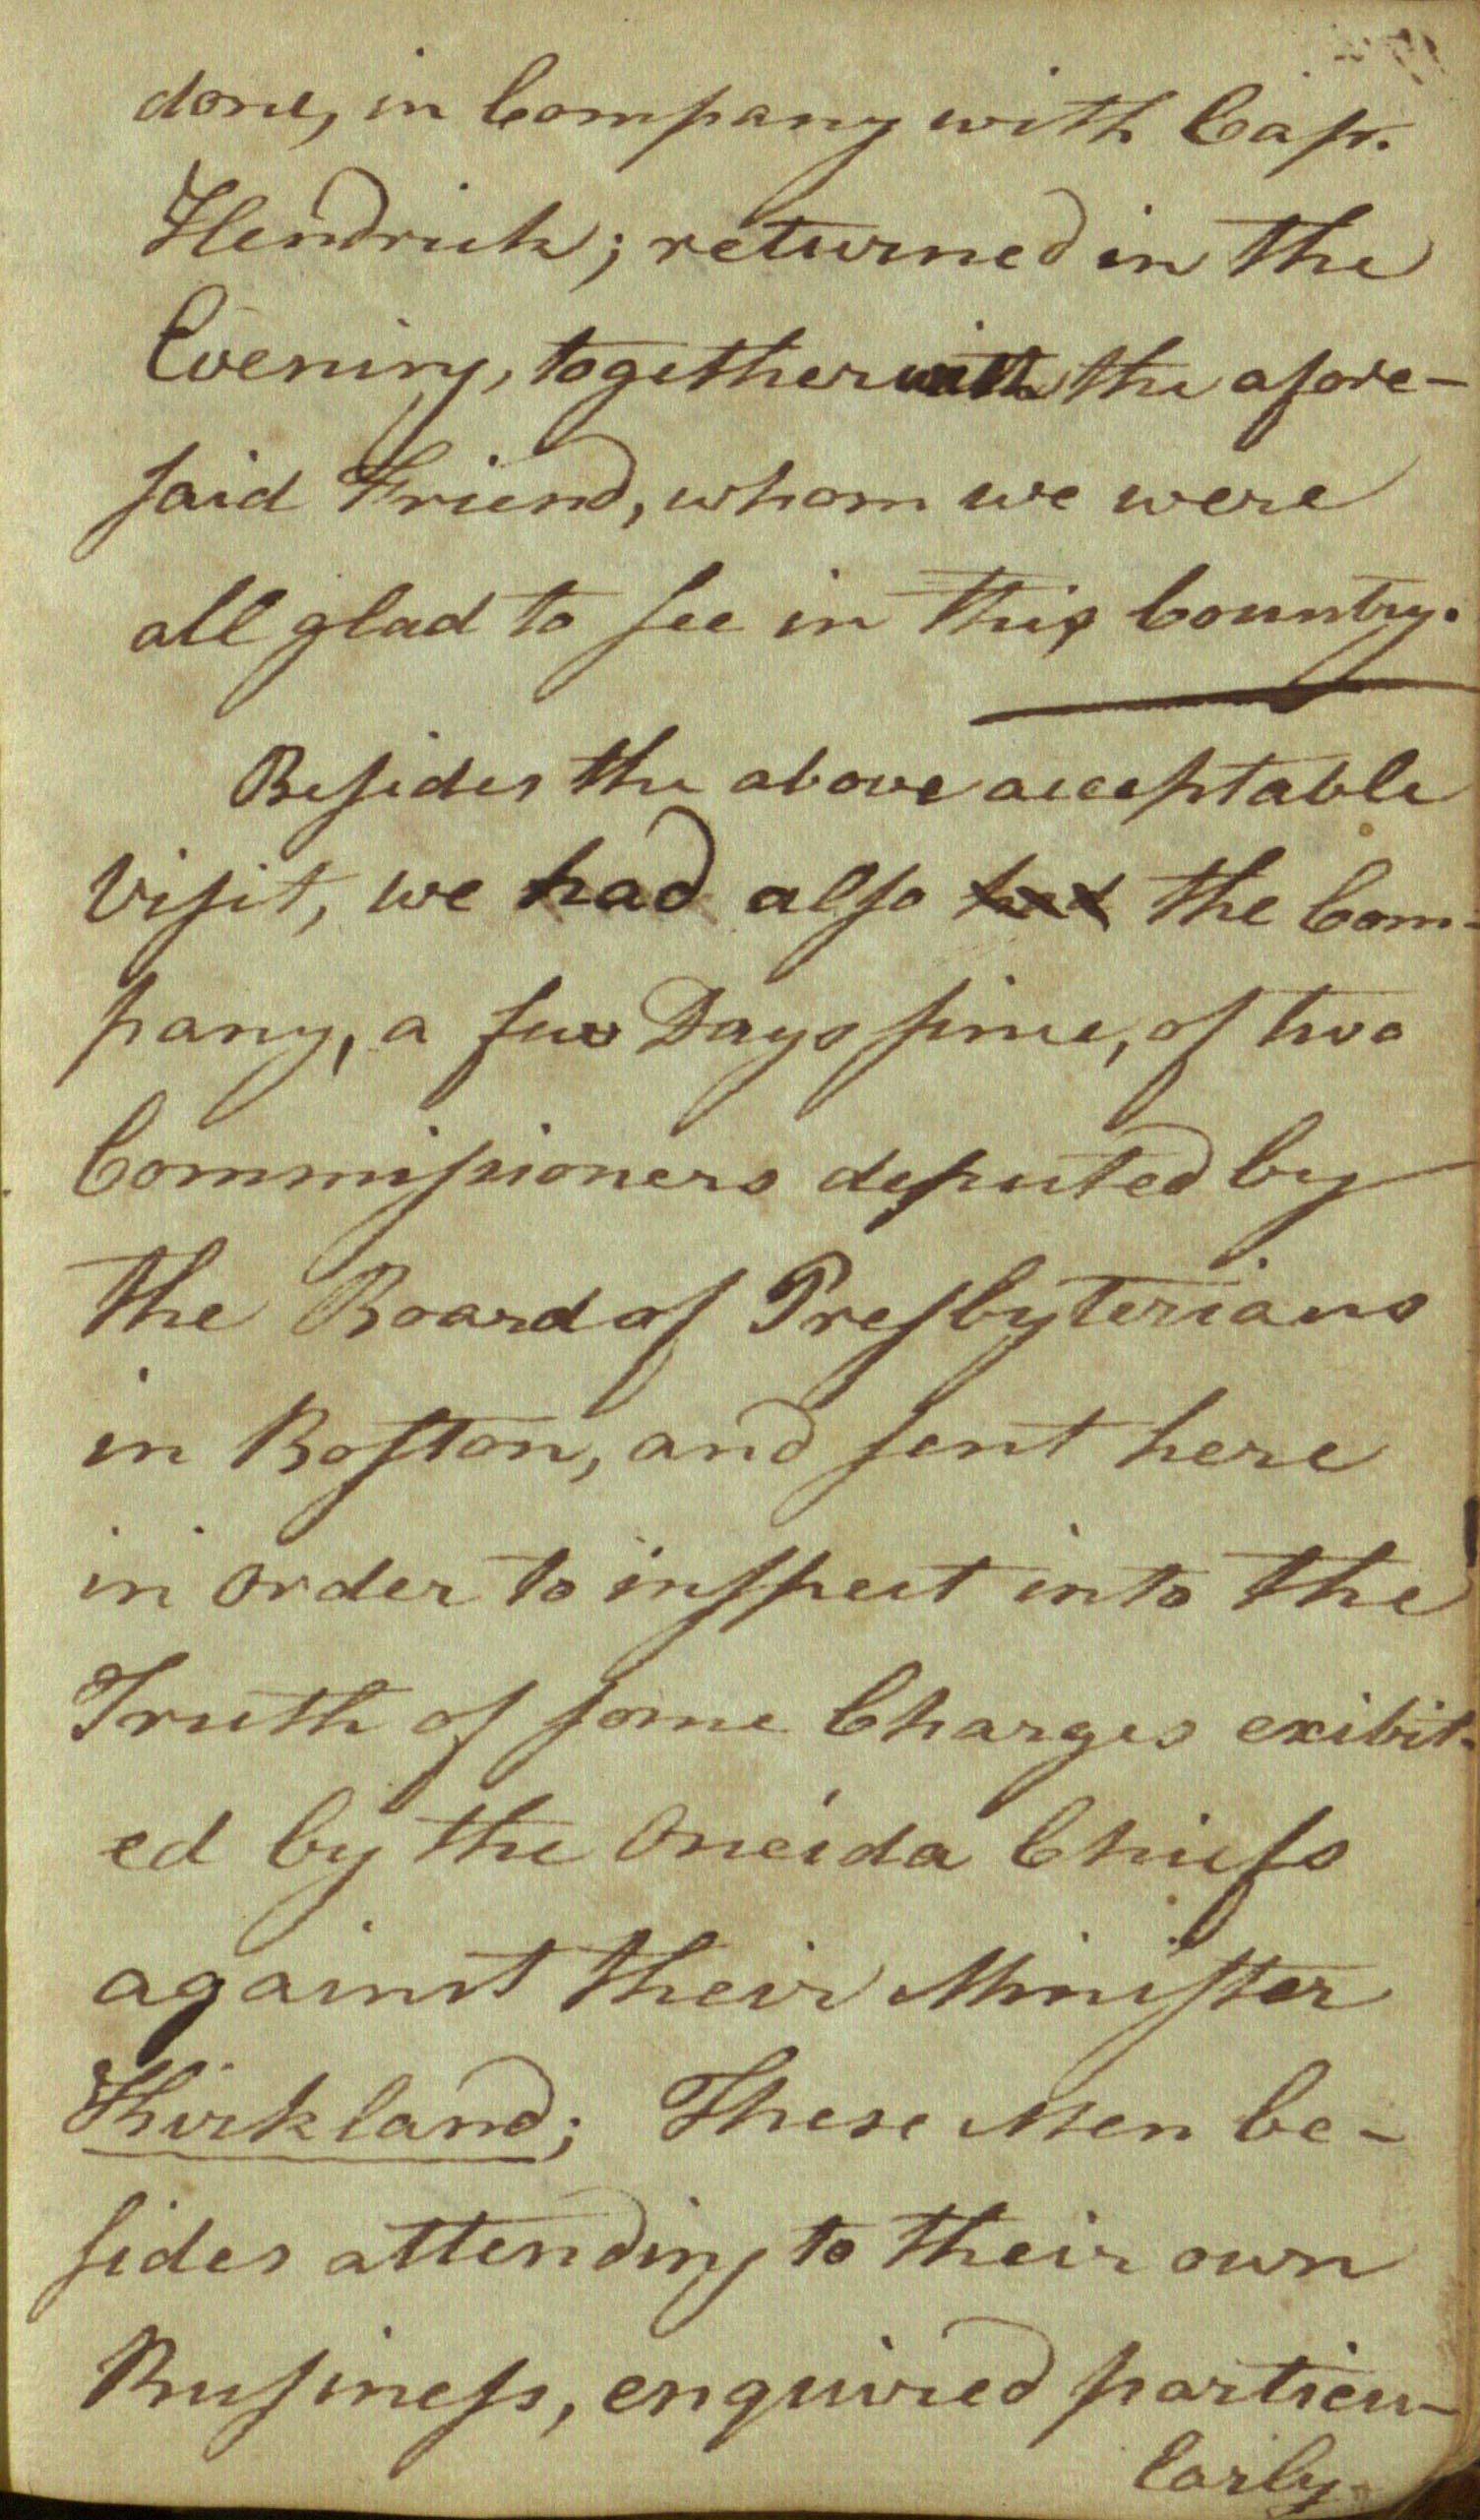 done, in Company with Cap.
Hendrick; returned in the
Evening, together with the afore-
said Friend, whom we were
all glad to see in this Country.
Besides the above acceptable
Visit, we had also had the Com-
pany, a few Days since, of two
Commissioners deputed by
the Board of Presbyterians
in Boston, and sent here
in Order to inspect into the
Truth of some Charges exibit-
ed by the Oneida Chiefs
against their Minister
Kirkland; These Men be-
sides attending to their own
Business, enquired particu-
larly